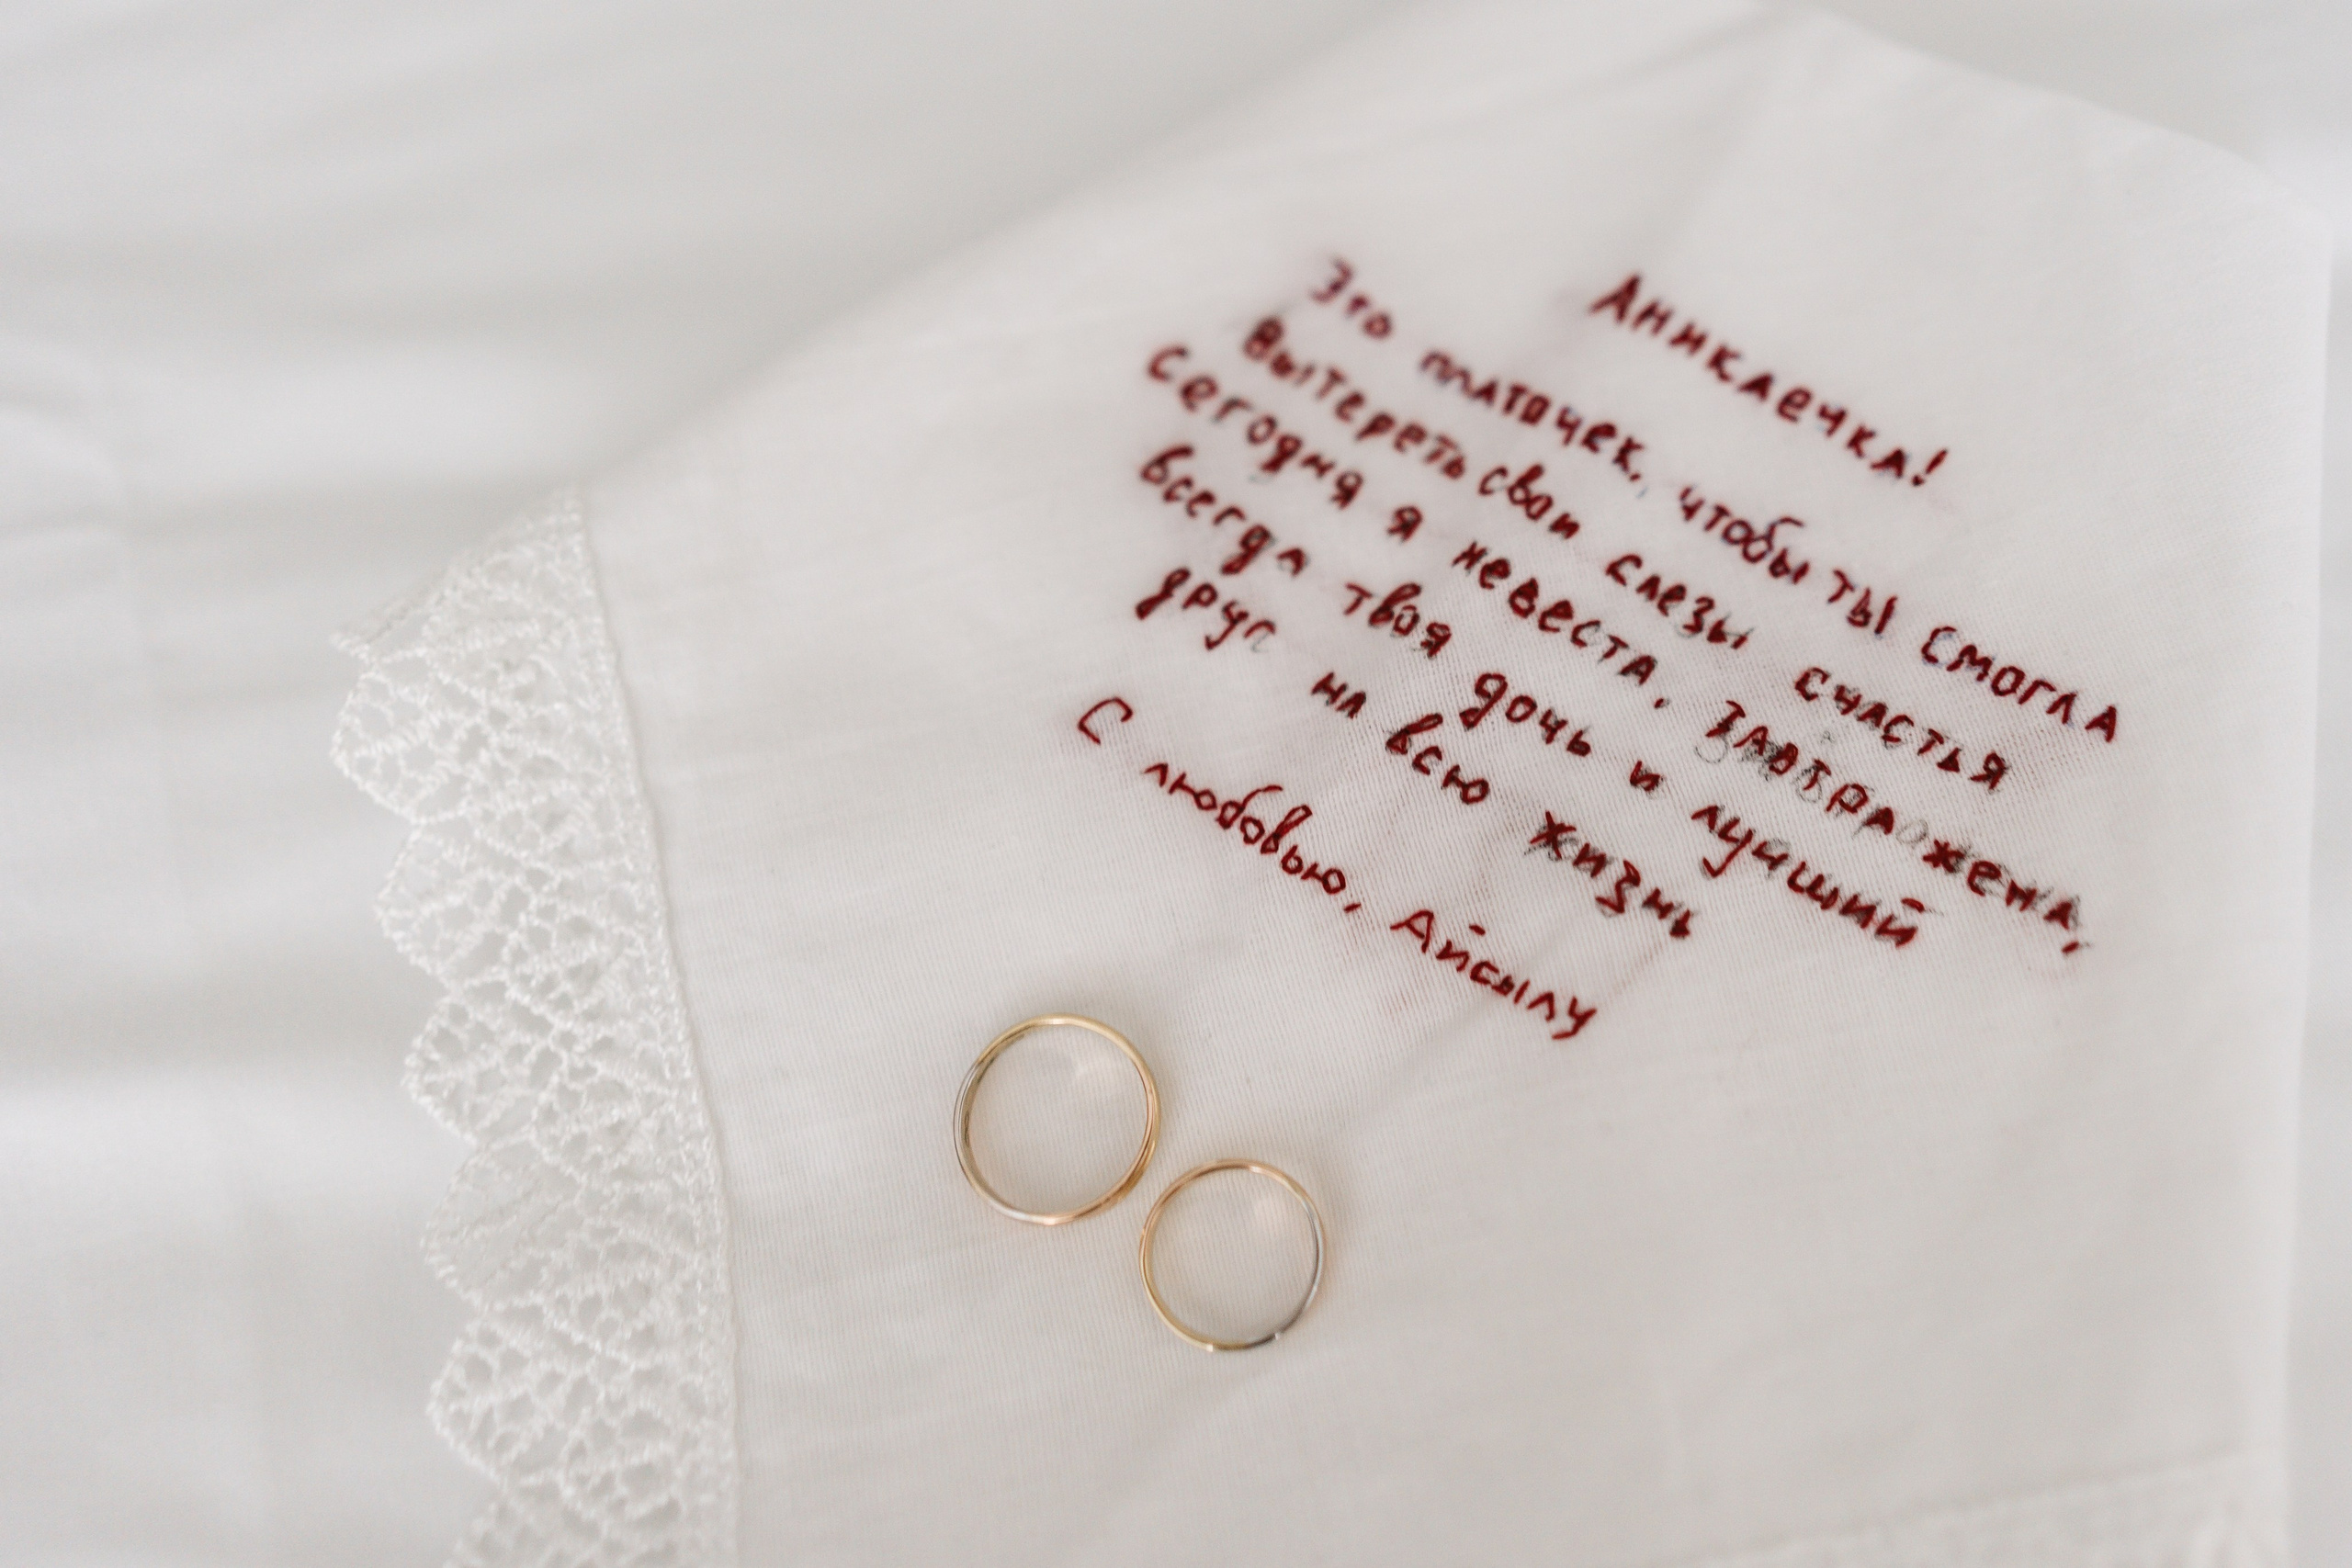 Аникаечка!
Это платочек, чтобы ты смогла
вытереть свои слезы счастья
Сегодня я невеста. Завтра жена,
всегда твоя дочь и лучший
друг на всю жизнь
С любовью, Айсылу